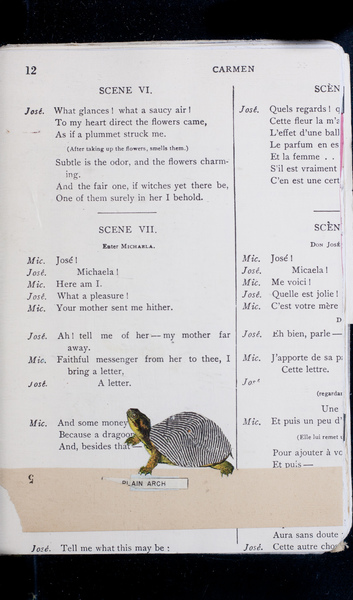 12
CARMEN
SCENE VI.
José. What glances! what a saucy air!
To my heart direct the flowers came,
As if a plummet struck me.
(After taking up the flowers, smells them.)
Subtle is the odor, and the flowers charm-
ing.
And the fair one, if witches yet there be,
One of them surely in her I behold.
SCENE VII.
Enter MICHAELA.
Mic. José!
José. Michaela!
Mic. Here am I.
José. What a pleasure!
Mic. Your mother sent me hither.
José. Ah! tell me of her—my mother far
away.
Mic. Faithful messenger from her to thee, I
bring a letter,
José. A letter.
Mic. And some money
Because a dragoon
And, besides that—
5
PLAIN ARCH
José. Tell me what this may be:
SCÈN
José. Quels regards! q
Cette fleur la m'a
L'effet d'une ball
Le parfum en es
Et la femme . .
S'il est vraiment
C'en est une cert
SCÈN
DON JOSÉ
Mic. José!
José. Micaela!
Mic. Me voici!
José. Quelle est jolie!
Mic. C'est votre mère
D
José. Eh bien, parle—
Mic. J'apporte de sa p
Cette lettre.
José
(regardan
Une
Mic. Et puis un peu d'
(Elle lui remet
Pour ajouter à vo
Et puis—
Aura sans doute
José. Cette autre cho